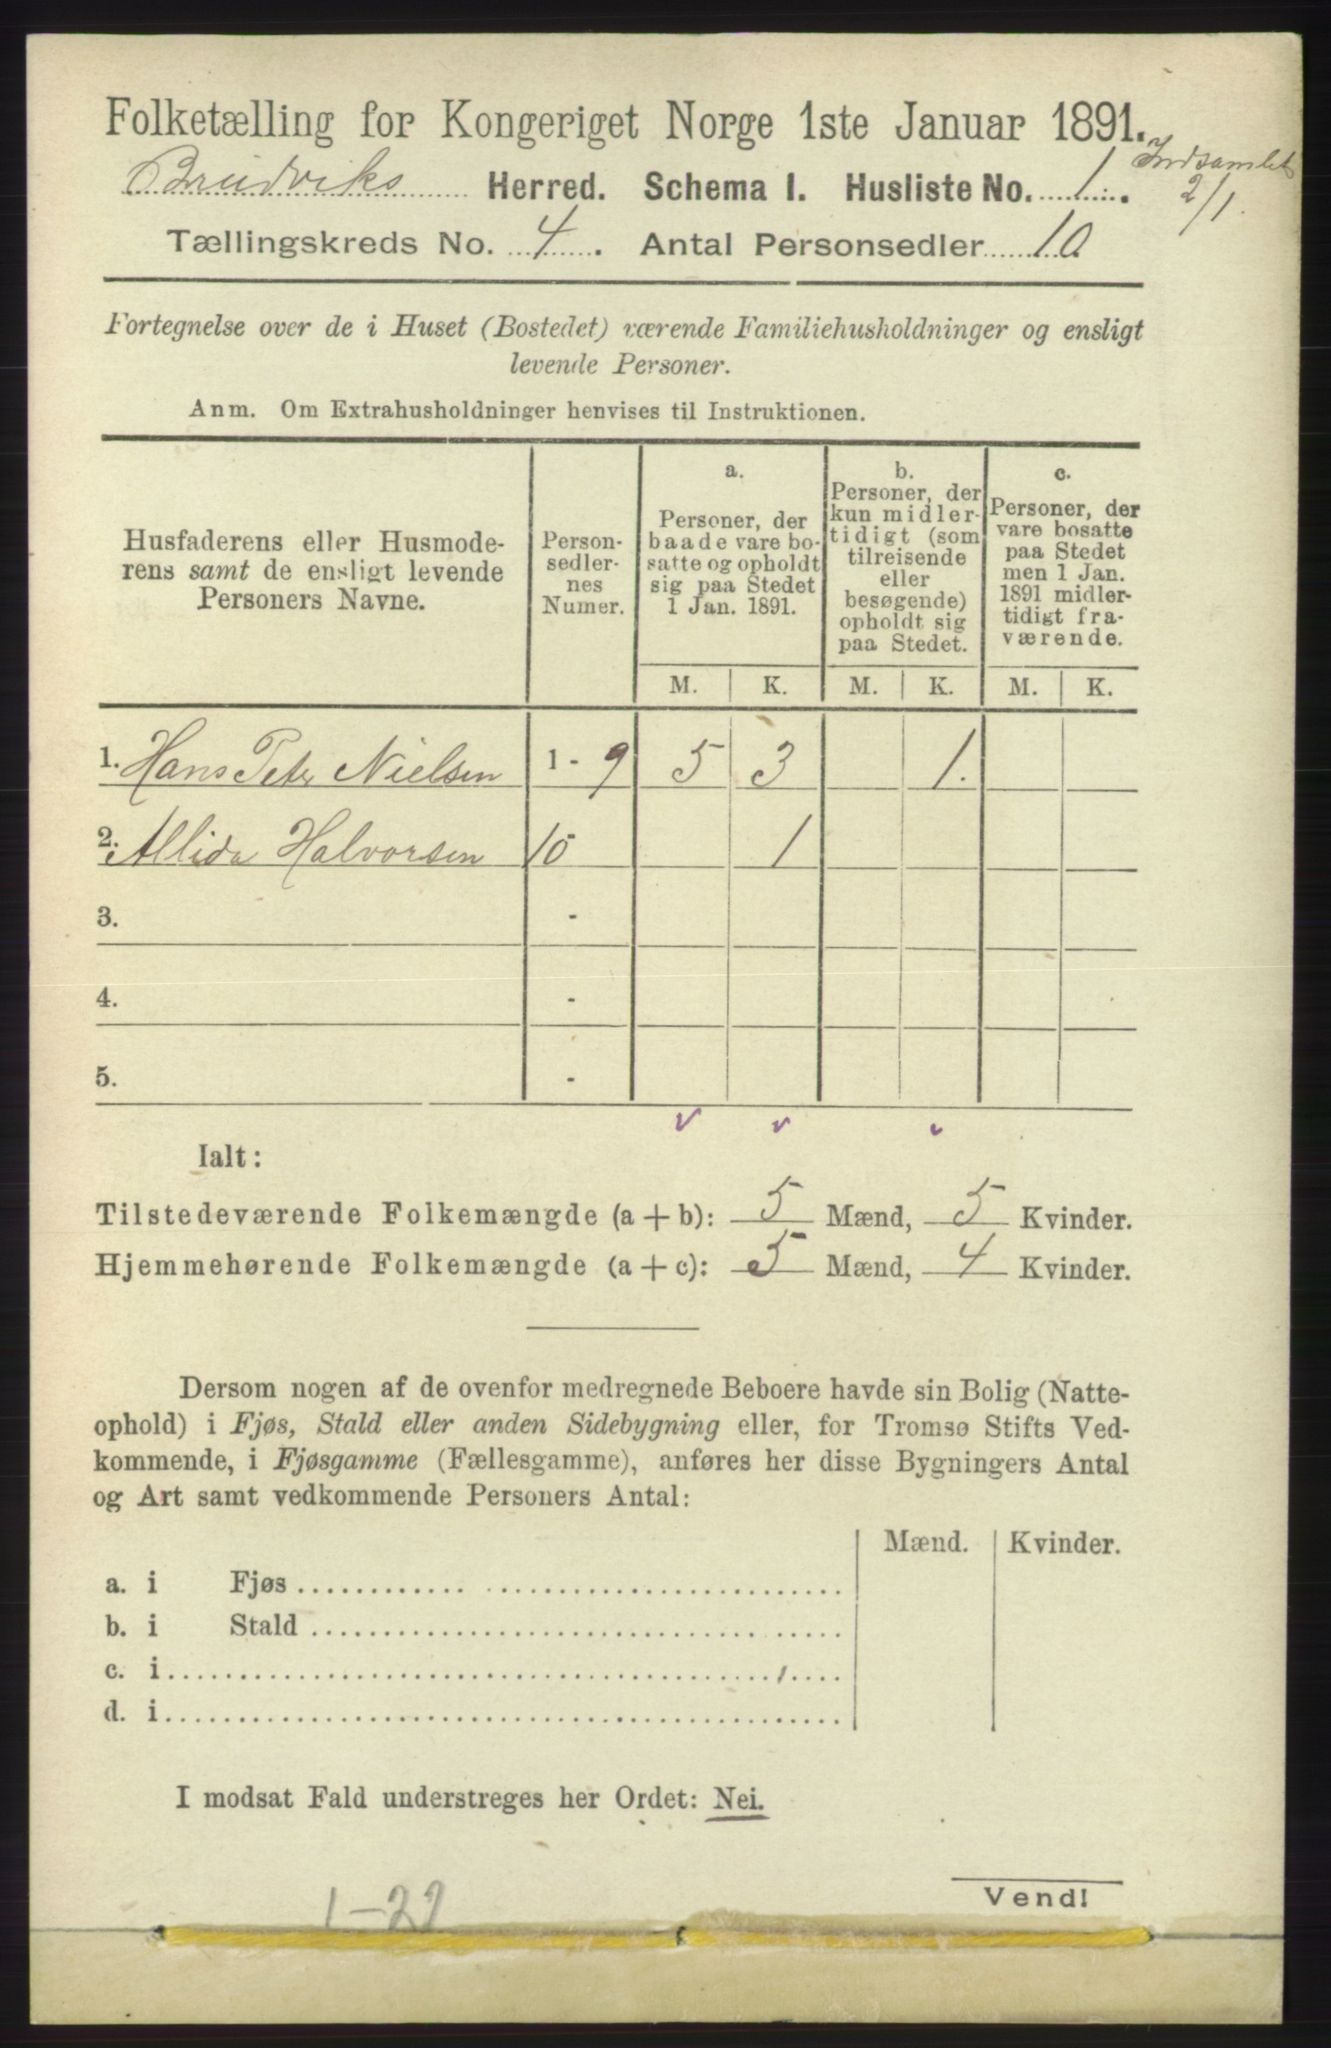 Folketælling for Kongeriget Norge 1ste Januar 1891.
Indsamlet
2/1.
Brudviks Herred. Schema I. Husliste No. 1.
Tællingskreds No. 4. Antal Personsedler 10
Fortegnelse over de i Huset (Bostedet) værende Familiehusholdninger og ensligt
levende Personer.
Anm. Om Extrahusholdninger henvises til Instruktionen.
Husfaderens eller Husmode-
rens samt de ensligt levende
Personers Navne.
Person-
sedler-
nes
Numer.
a.
Personer, der
baade vare bo-
satte og opholdt
sig paa Stedet
1 Jan. 1891.
b.
Personer, der
kun midler-
tidigt (som
tilreisende
eller
besøgende)
opholdt sig
paa Stedet.
c.
Personer, der
vare bosatte
paa Stedet
men 1 Jan.
1891 midler-
tidigt fra-
værende.
M. K. M. K. M. K.
1. Hans Peter Nielsen 1 - 9 5 3 1.
2. Allida Halvorsen 10 1
3. -
4. -
5. -
Ialt:
Tilstedeværende Folkemængde (a + b): 5 Mænd, 5 Kvinder.
Hjemmehørende Folkemængde (a + c): 5 Mænd, 4 Kvinder.
Dersom nogen af de ovenfor medregnede Beboere havde sin Bolig (Natte-
ophold) i Fjøs, Stald eller anden Sidebygning eller, for Tromsø Stifts Ved-
kommende, i Fjøsgamme (Fællesgamme), anføres her disse Bygningers Antal
og Art samt vedkommende Personers Antal:
Mænd. Kvinder.
a. i Fjøs
b. i Stald
c. i
d. i
I modsat Fald understreges her Ordet: Nei.
Vend!
1-22